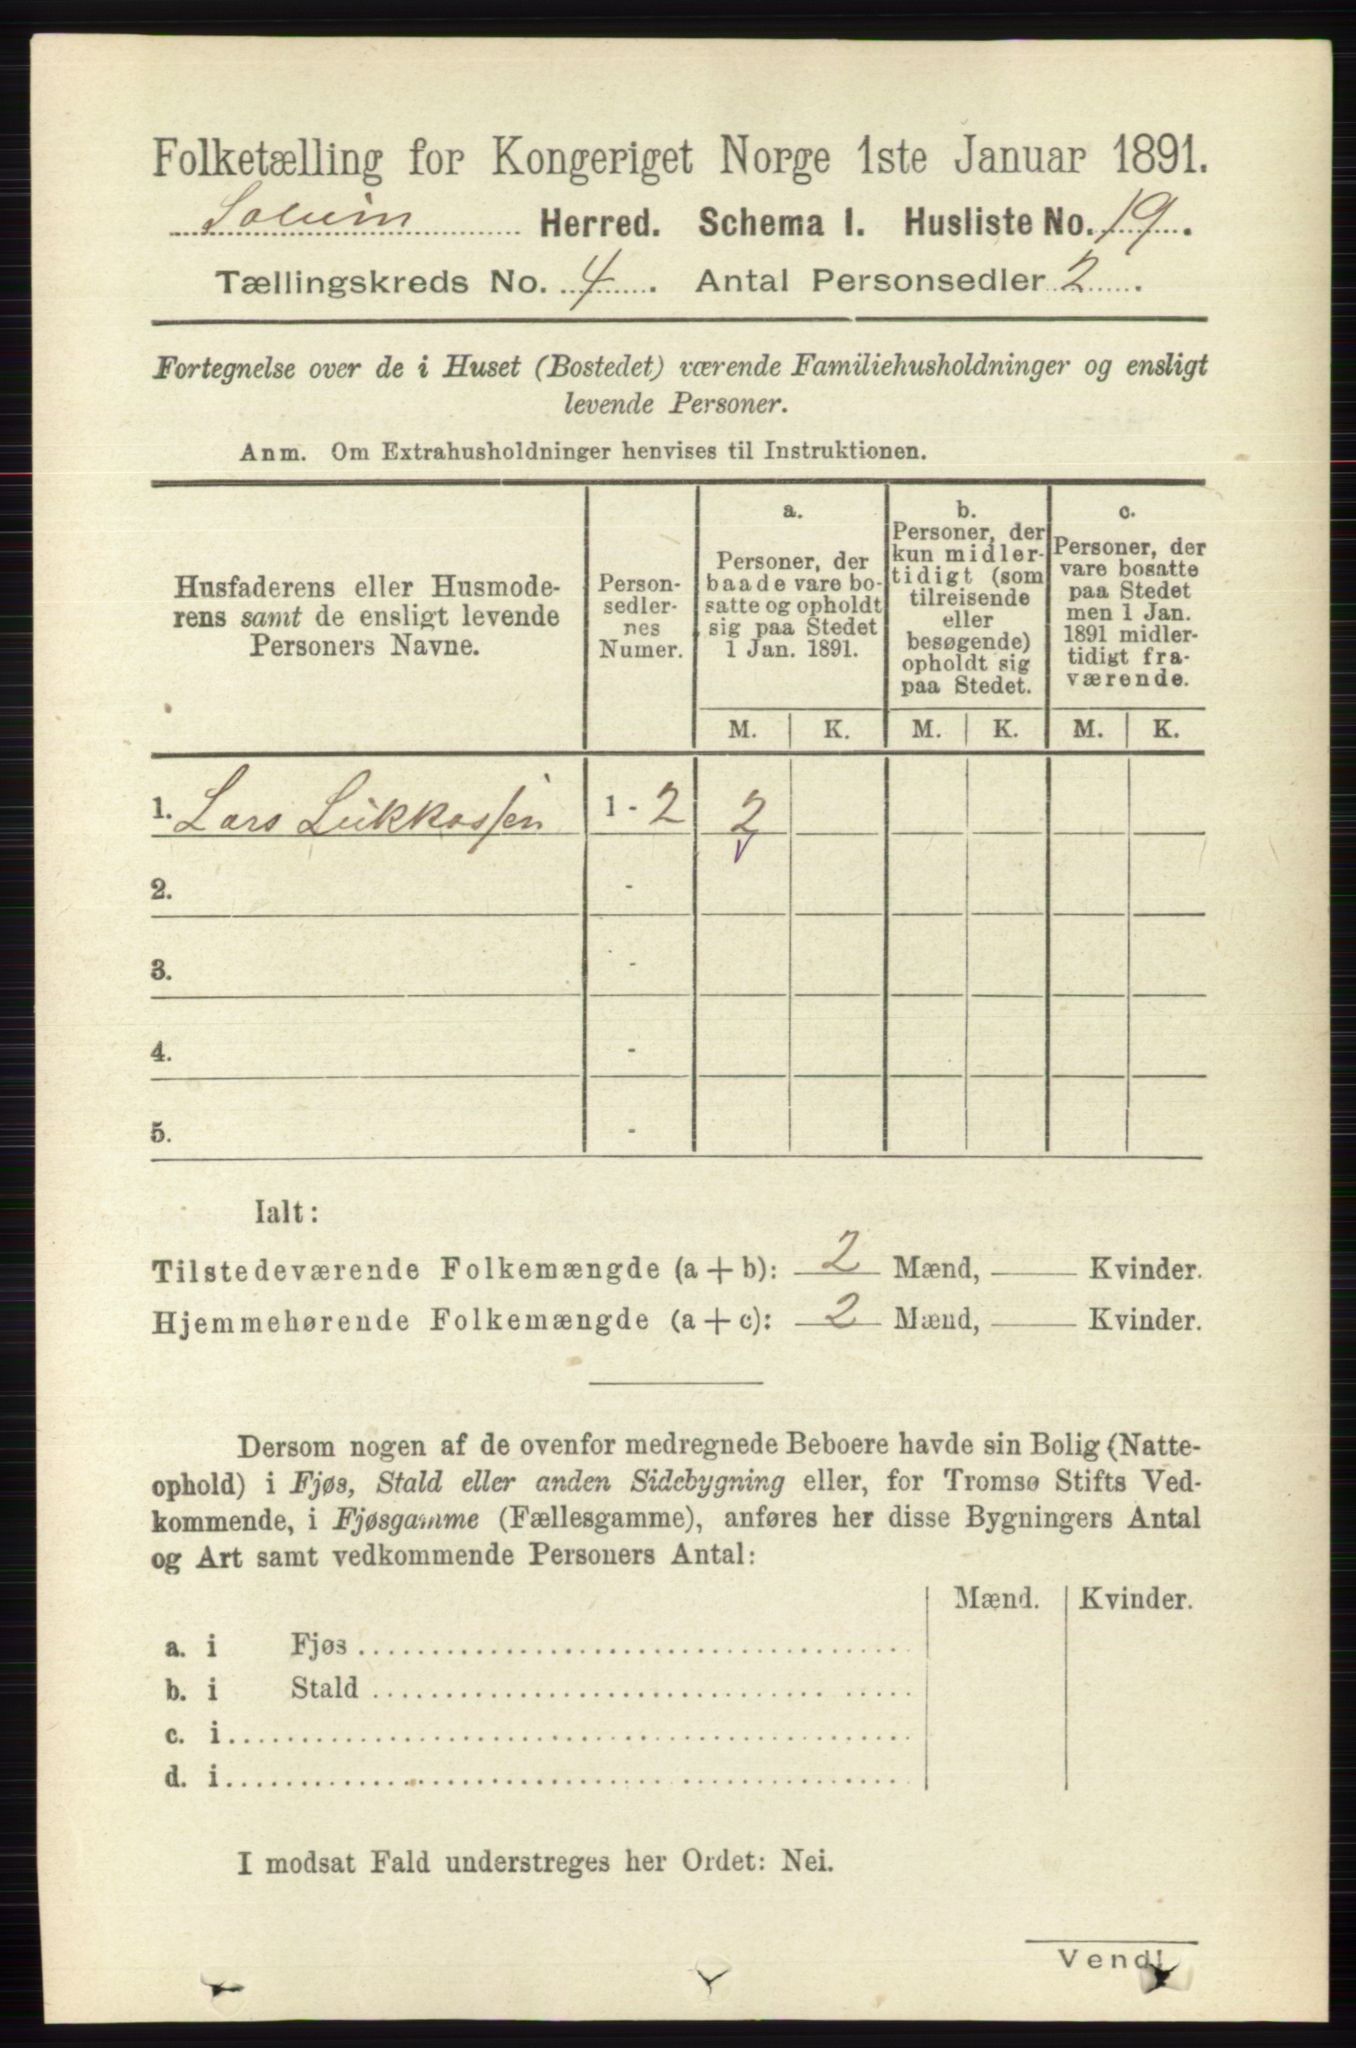 Folketælling for Kongeriget Norge 1ste Januar 1891.
Solum Herred. Schema I. Husliste No. 19.
Tællingskreds No. 4. Antal Personsedler 2.
Fortegnelse over de i Huset (Bostedet) værende Familiehusholdninger og ensligt
levende Personer.
Anm. Om Extrahusholdninger henvises til Instruktionen.
Husfaderens eller Husmode-
rens samt de ensligt levende
Personers Navne.
Person-
sedler-
nes
Numer.
a.
Personer, der
baade vare bo-
satte og opholdt
sig paa Stedet
1 Jan. 1891.
b.
Personer, der
kun midler-
tidigt (som
tilreisende
eller
besøgende)
opholdt sig
paa Stedet.
c.
Personer, der
vare bosatte
paa Stedet
men 1 Jan.
1891 midler-
tidigt fra-
værende.
M. K. M. K. M. K.
1. Lars Lukkassen 1 - 2 2
2. -
3. -
4. -
5. -
Ialt:
Tilstedeværende Folkemængde (a + b): 2 Mænd, — Kvinder.
Hjemmehørende Folkemængde (a + c): 2 Mænd, — Kvinder.
Dersom nogen af de ovenfor medregnede Beboere havde sin Bolig (Natte-
ophold) i Fjøs, Stald eller anden Sidebygning eller, for Tromsø Stifts Ved-
kommende, i Fjøsgamme (Fællesgamme), anføres her disse Bygningers Antal
og Art samt vedkommende Personers Antal:
Mænd. Kvinder.
a. i Fjøs
b. i Stald
c. i
d. i
I modsat Fald understreges her Ordet: Nei.
Vend!